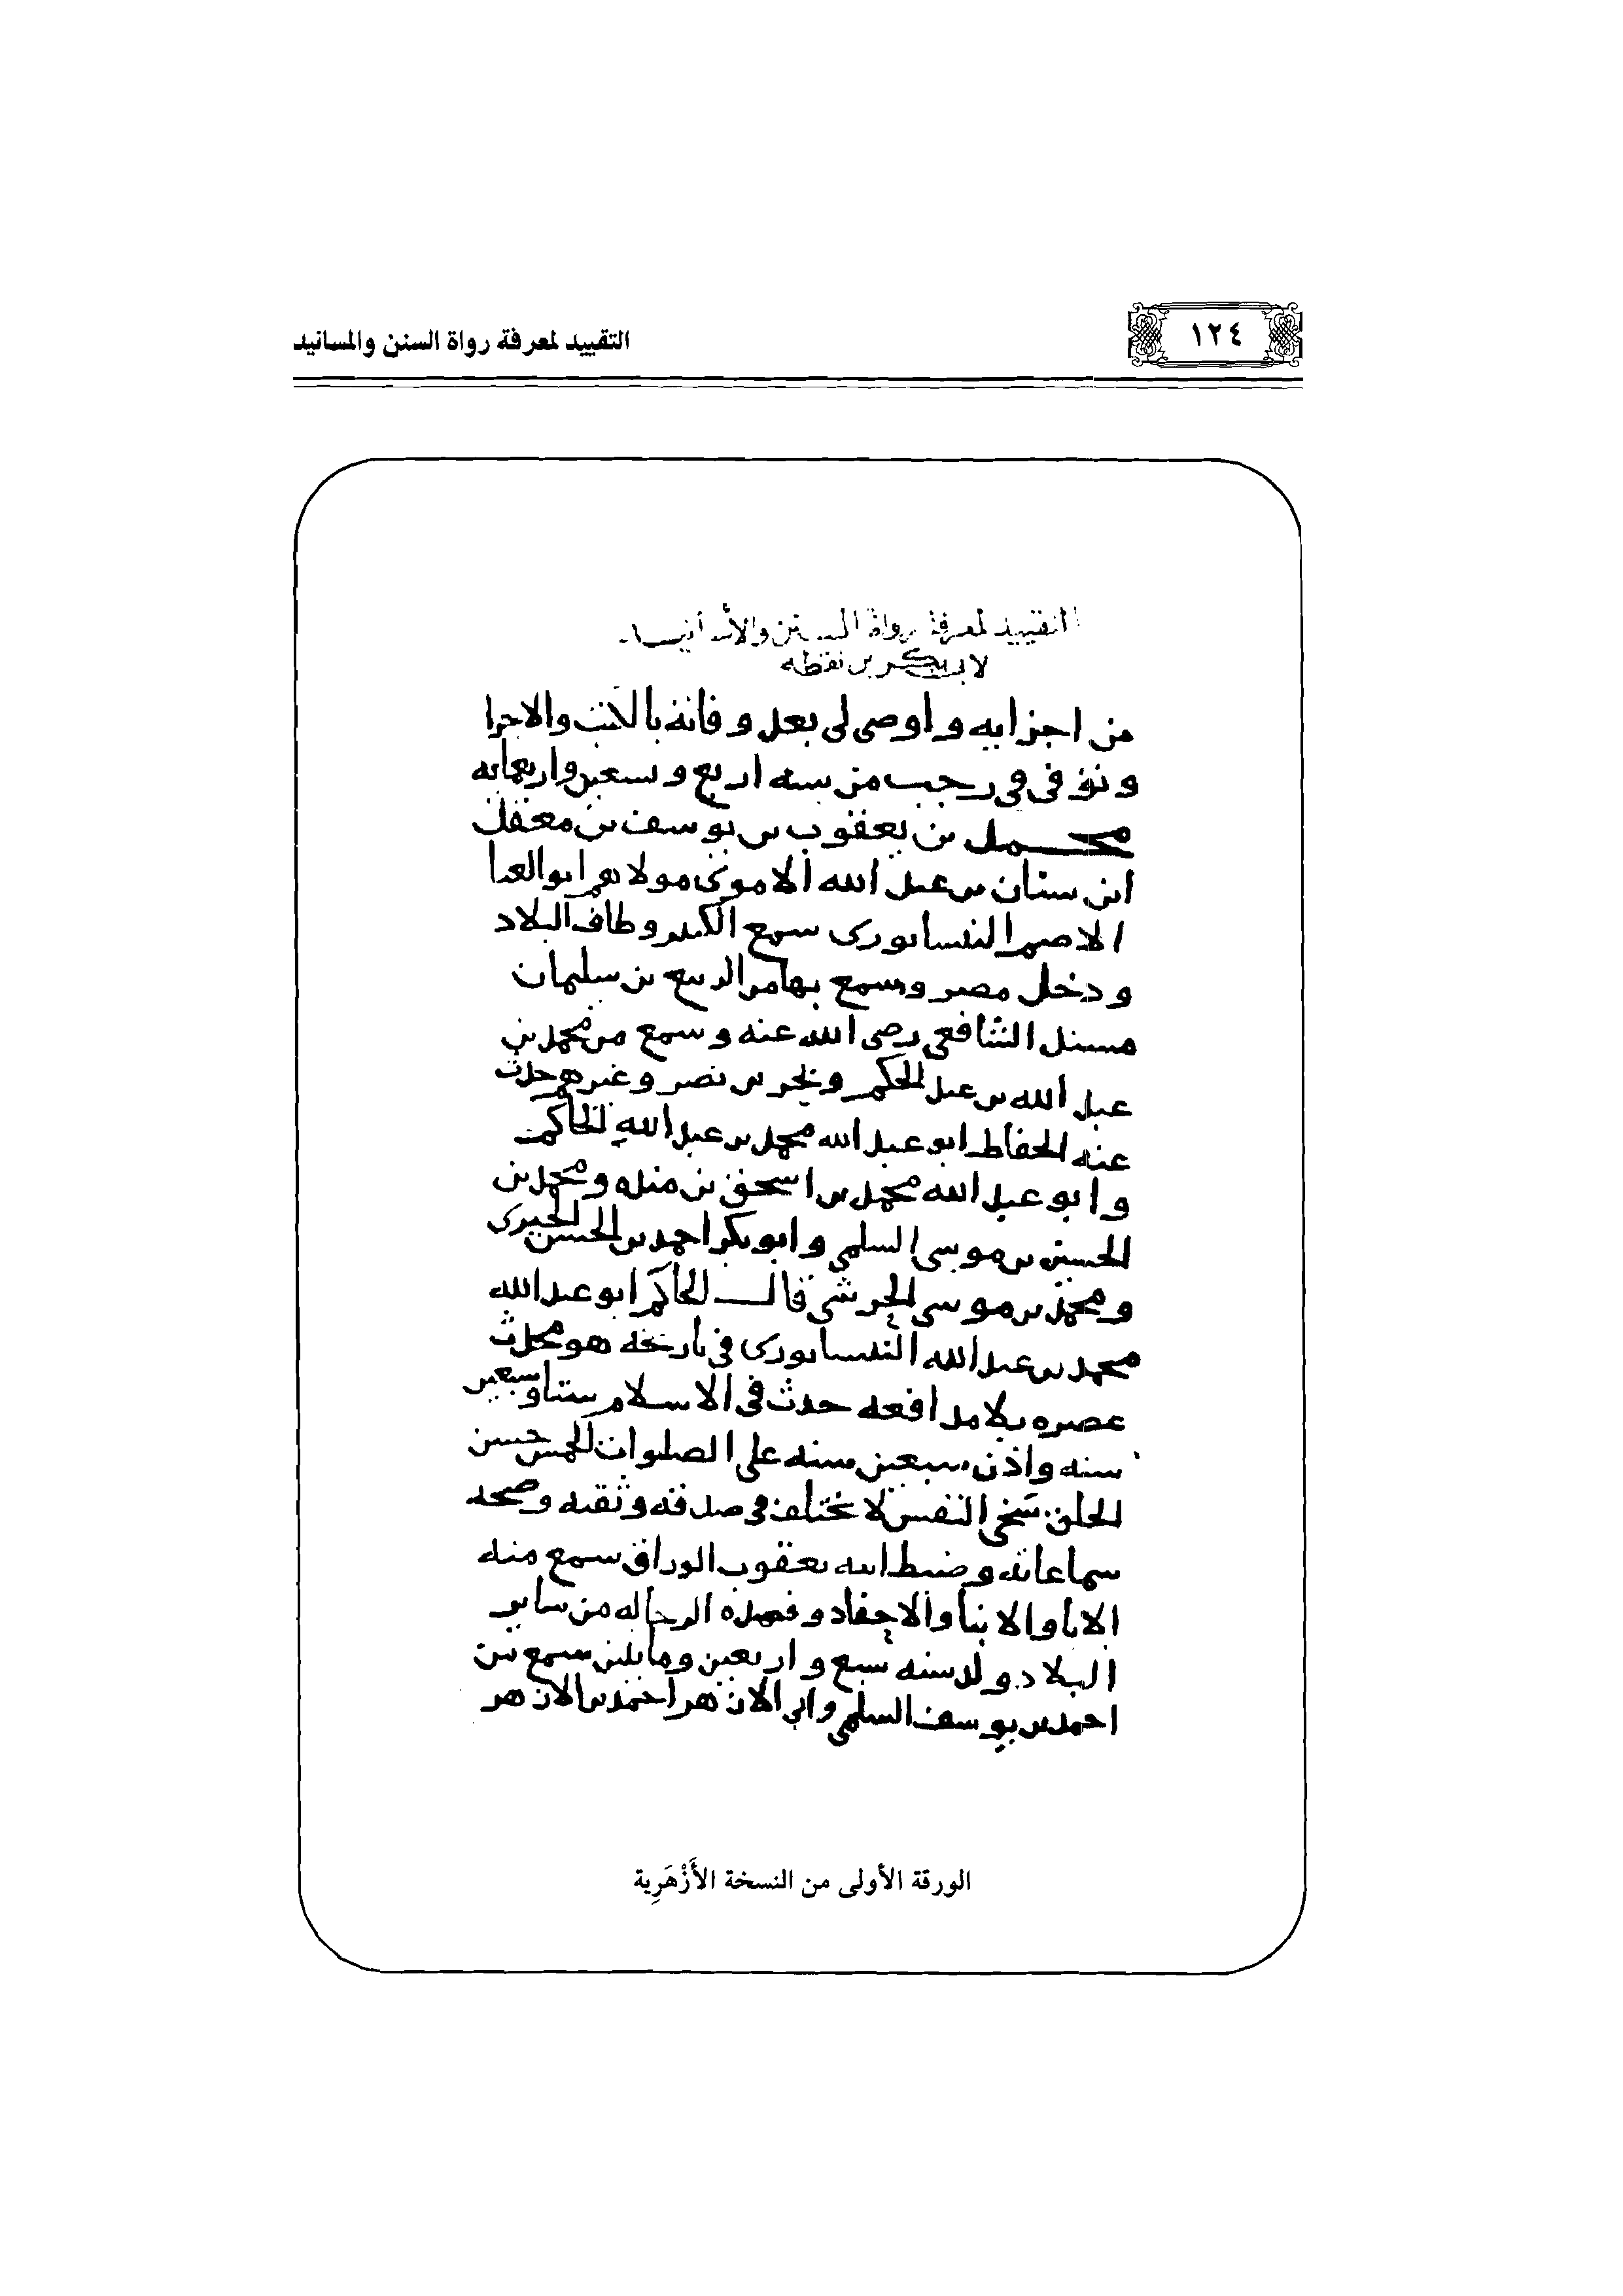 ١٢٤
التقييد لمعرفة رواة السنن والمسانيد
التقييد لمعرفة رواة السنن والأسانيد
لابي بكر بن نقطه
من اجزايه واوصى لى بعد وفاته بالكتب والاجزا
وتوفى فى رجب من سنه اربع وسبعين واربعمايه
محمد بن يعقوب بن يوسف بن معقل
ابن سنان بن عبد الله الاموى مولاهم ابو العبا
الاصم النيسابورى سمع الكثير وطاف البلاد
ودخل مصر وسمع بها من الربيع بن سليمان
مسند الشافعى رضى الله عنه وسمع من محمد بن
عبد الله بن عبد الحكم وبحر بن نصر وغيرهم حدث
عنه الحفاظ ابو عبد الله محمد بن عبد الله الحاكم
وابو عبد الله محمد بن اسحق بن منده ومحمد بن
الحسين بن موسى السلمى وابو بكر احمد بن الحسن الحيرى
ومحمد بن موسى الجرشى قال الحاكم ابو عبد الله
محمد بن عبد الله النيسابورى فى تاريخه هو محدث
عصره بلا مدافعه حدث فى الاسلام ستا وسبعين
سنه واذن سبعين سنه على الصلوات الخمس حسن
الخلق سخى النفس لا يختلف فى صدقه وثقته وصحه
سماعاته وضبط ابيه يعقوب الوراق سمع منه
الابا والابنا والاحفاد وقصده الرحاله من ساير
البلاد ولد سنه سبع واربعين ومايتين سمع من
احمد بن يوسف السلمى وابى الازهر احمد بن الازهر
الورقة الأولى من النسخة الأَزْهَرِية